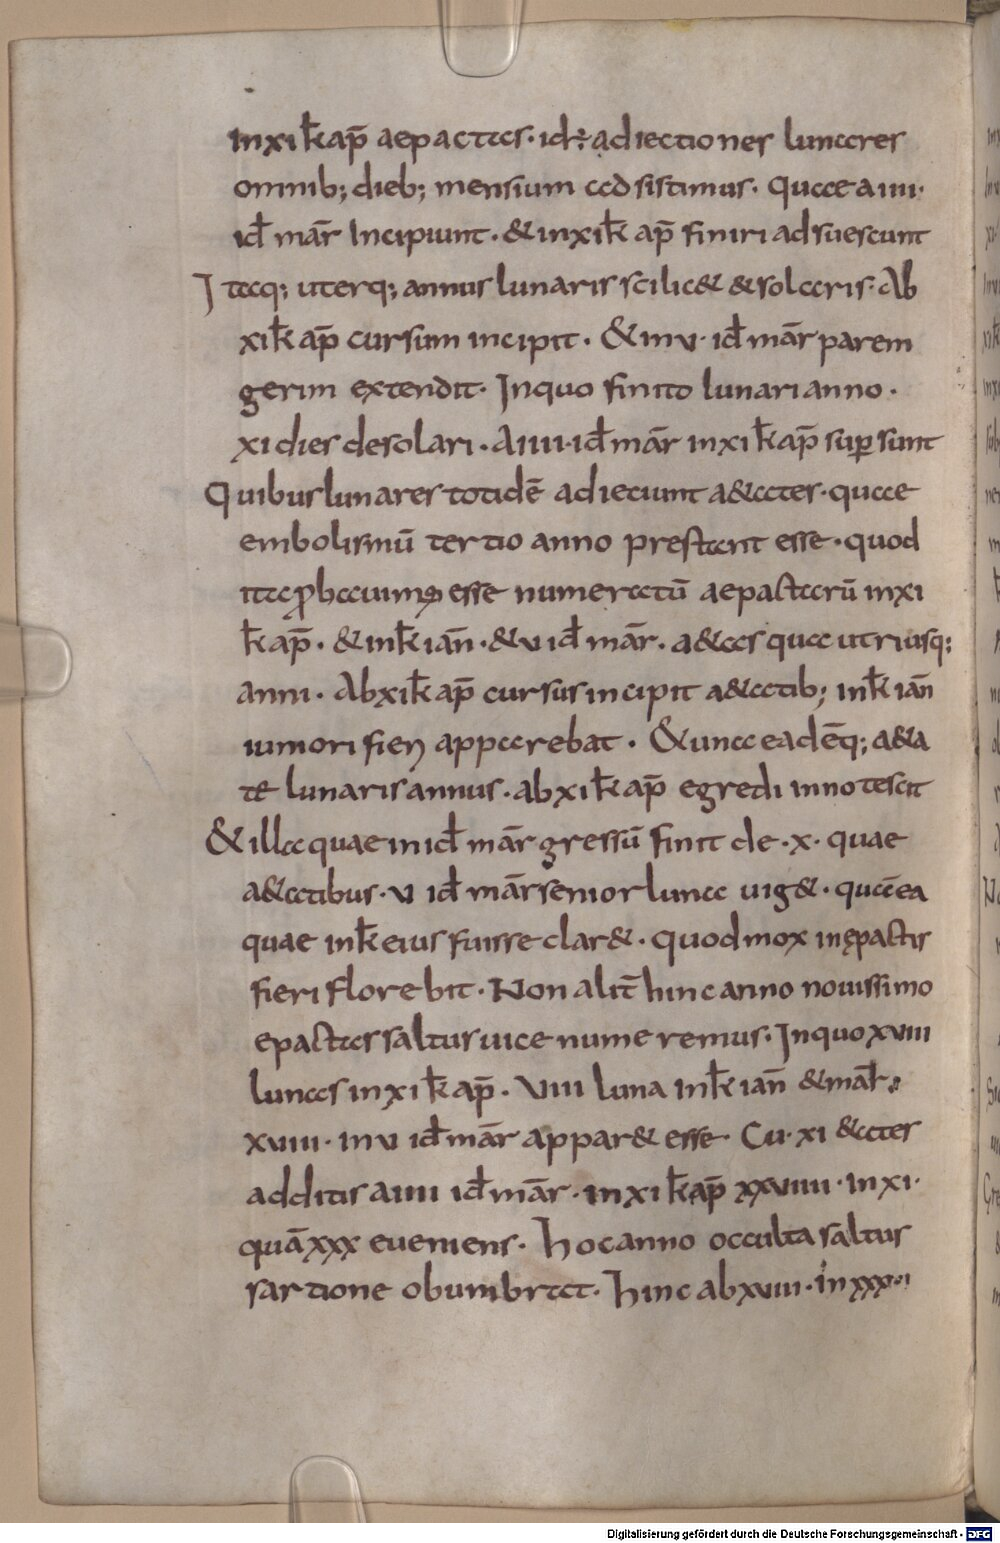 inxi kł ap̄ aepactas · id÷ adiectiones lunares
omnib; dieb; mensium adsistimus · Quae a iiii ·
id̄ mar̄ Incipiunt · & inxi kł ap̄ finiri adsuescunt
Itaq; uterq; annus lunaris scilic& & solaris · Ab
xi kł ap̄ cursum incipit · & in v · id̄ mar̄ parem
gerim extendit · Inquo finito lunari anno ·
xi dies desolari · A iiii · id̄ mar̄ in xi kł ap̄ suꝑsunt
Quibus lunares totidē adieciunt a&ates · quae
embolismū tertio anno prestant esse · quod
ita ꝓbauimus esse numeratū aepactarū in xi
kł ap̄ · & in kł ian̄ · & v id̄ mar̄ · a&as quae utriusq;
anni · Ab xi kł ap̄ cursus incipit a&atib; in kł ian̄
iuniori fieri apparebat · & una eadēq; a&a
te lunaris annus · ab xi kł ap̄ egredi innotescit
& illa quae in id̄ mar̄ gressū finit de · x · quae
a&atibus · v id̄ mar̄ senior luna uig& · quāea
quae in kł eius fuisse clar& · quod mox in ępactis
fieri florebit · Non alit̄ hinc anno nouissimo
epactas saltus uice numeremus · Inquo xviii
lunas in xi kł ap̄ · Viii luna in kł ian̄ & mar̄
xviii · in v id̄ mar̄ appar& esse · Cu · xi &ates
additis a iiii id̄ mar̄ · in xi kł ap̄ xxviiii · in xi ·
quā xxx eueniens · hoc anno occulta saltus
sartione obumbrat · hinc ab xviii · in xxx ·
Digitalisierung gefördert durch die Deutsche Forschungsgemeinschaft - DFG